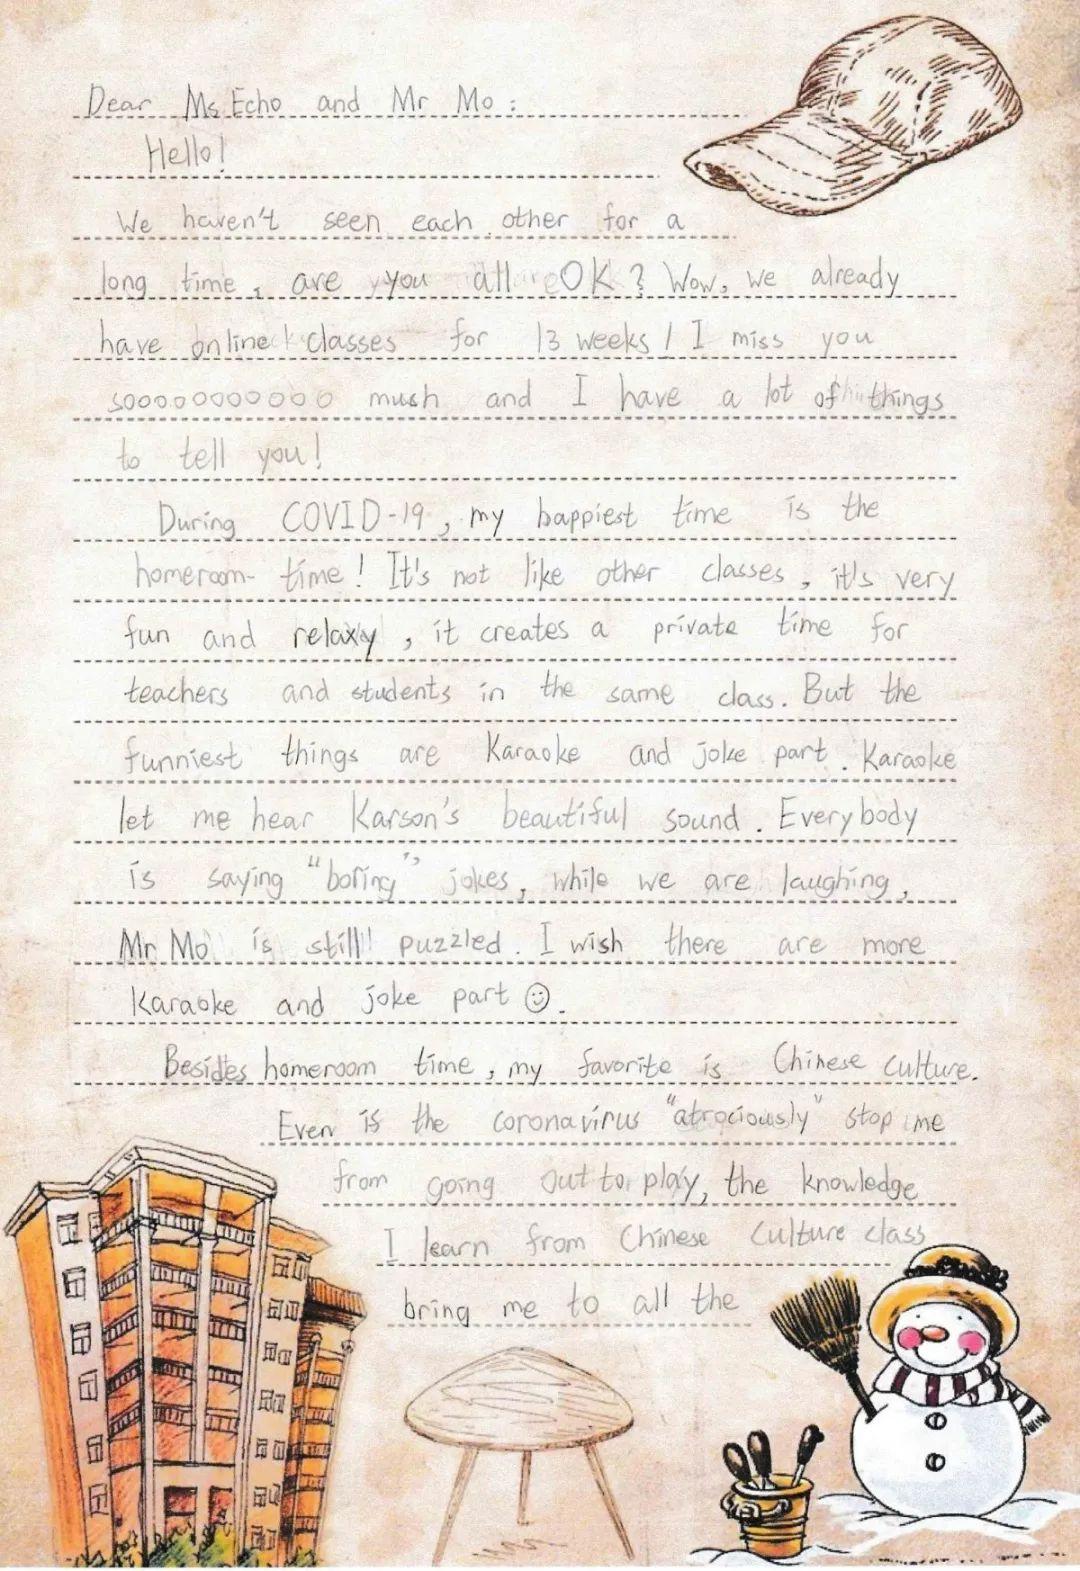 Dear Ms Echo and Mr Mo :
Hello!
We haven't seen each other for a
long time, are you all OK? Wow, we already
have online classes for 13 weeks! I miss you
sooooooooooo mush and I have a lot of things
to tell you!
During COVID-19, my happiest time is the
homeroom- time! It's not like other classes, it's very
fun and relaxy, it creates a private time for
teachers and students in the same class. But the
funniest things are Karaoke and joke part. Karaoke
let me hear Karson's beautiful sound. Everybody
is saying "boring" jokes, while we are laughing,
Mr Mo is still puzzled. I wish there are more
Karaoke and joke part ☺.
Besides homeroom time, my favorite is Chinese culture.
Even is the coronavirus "atrociously" stop me
from going out to play, the knowledge
I learn from Chinese Culture class
bring me to all the